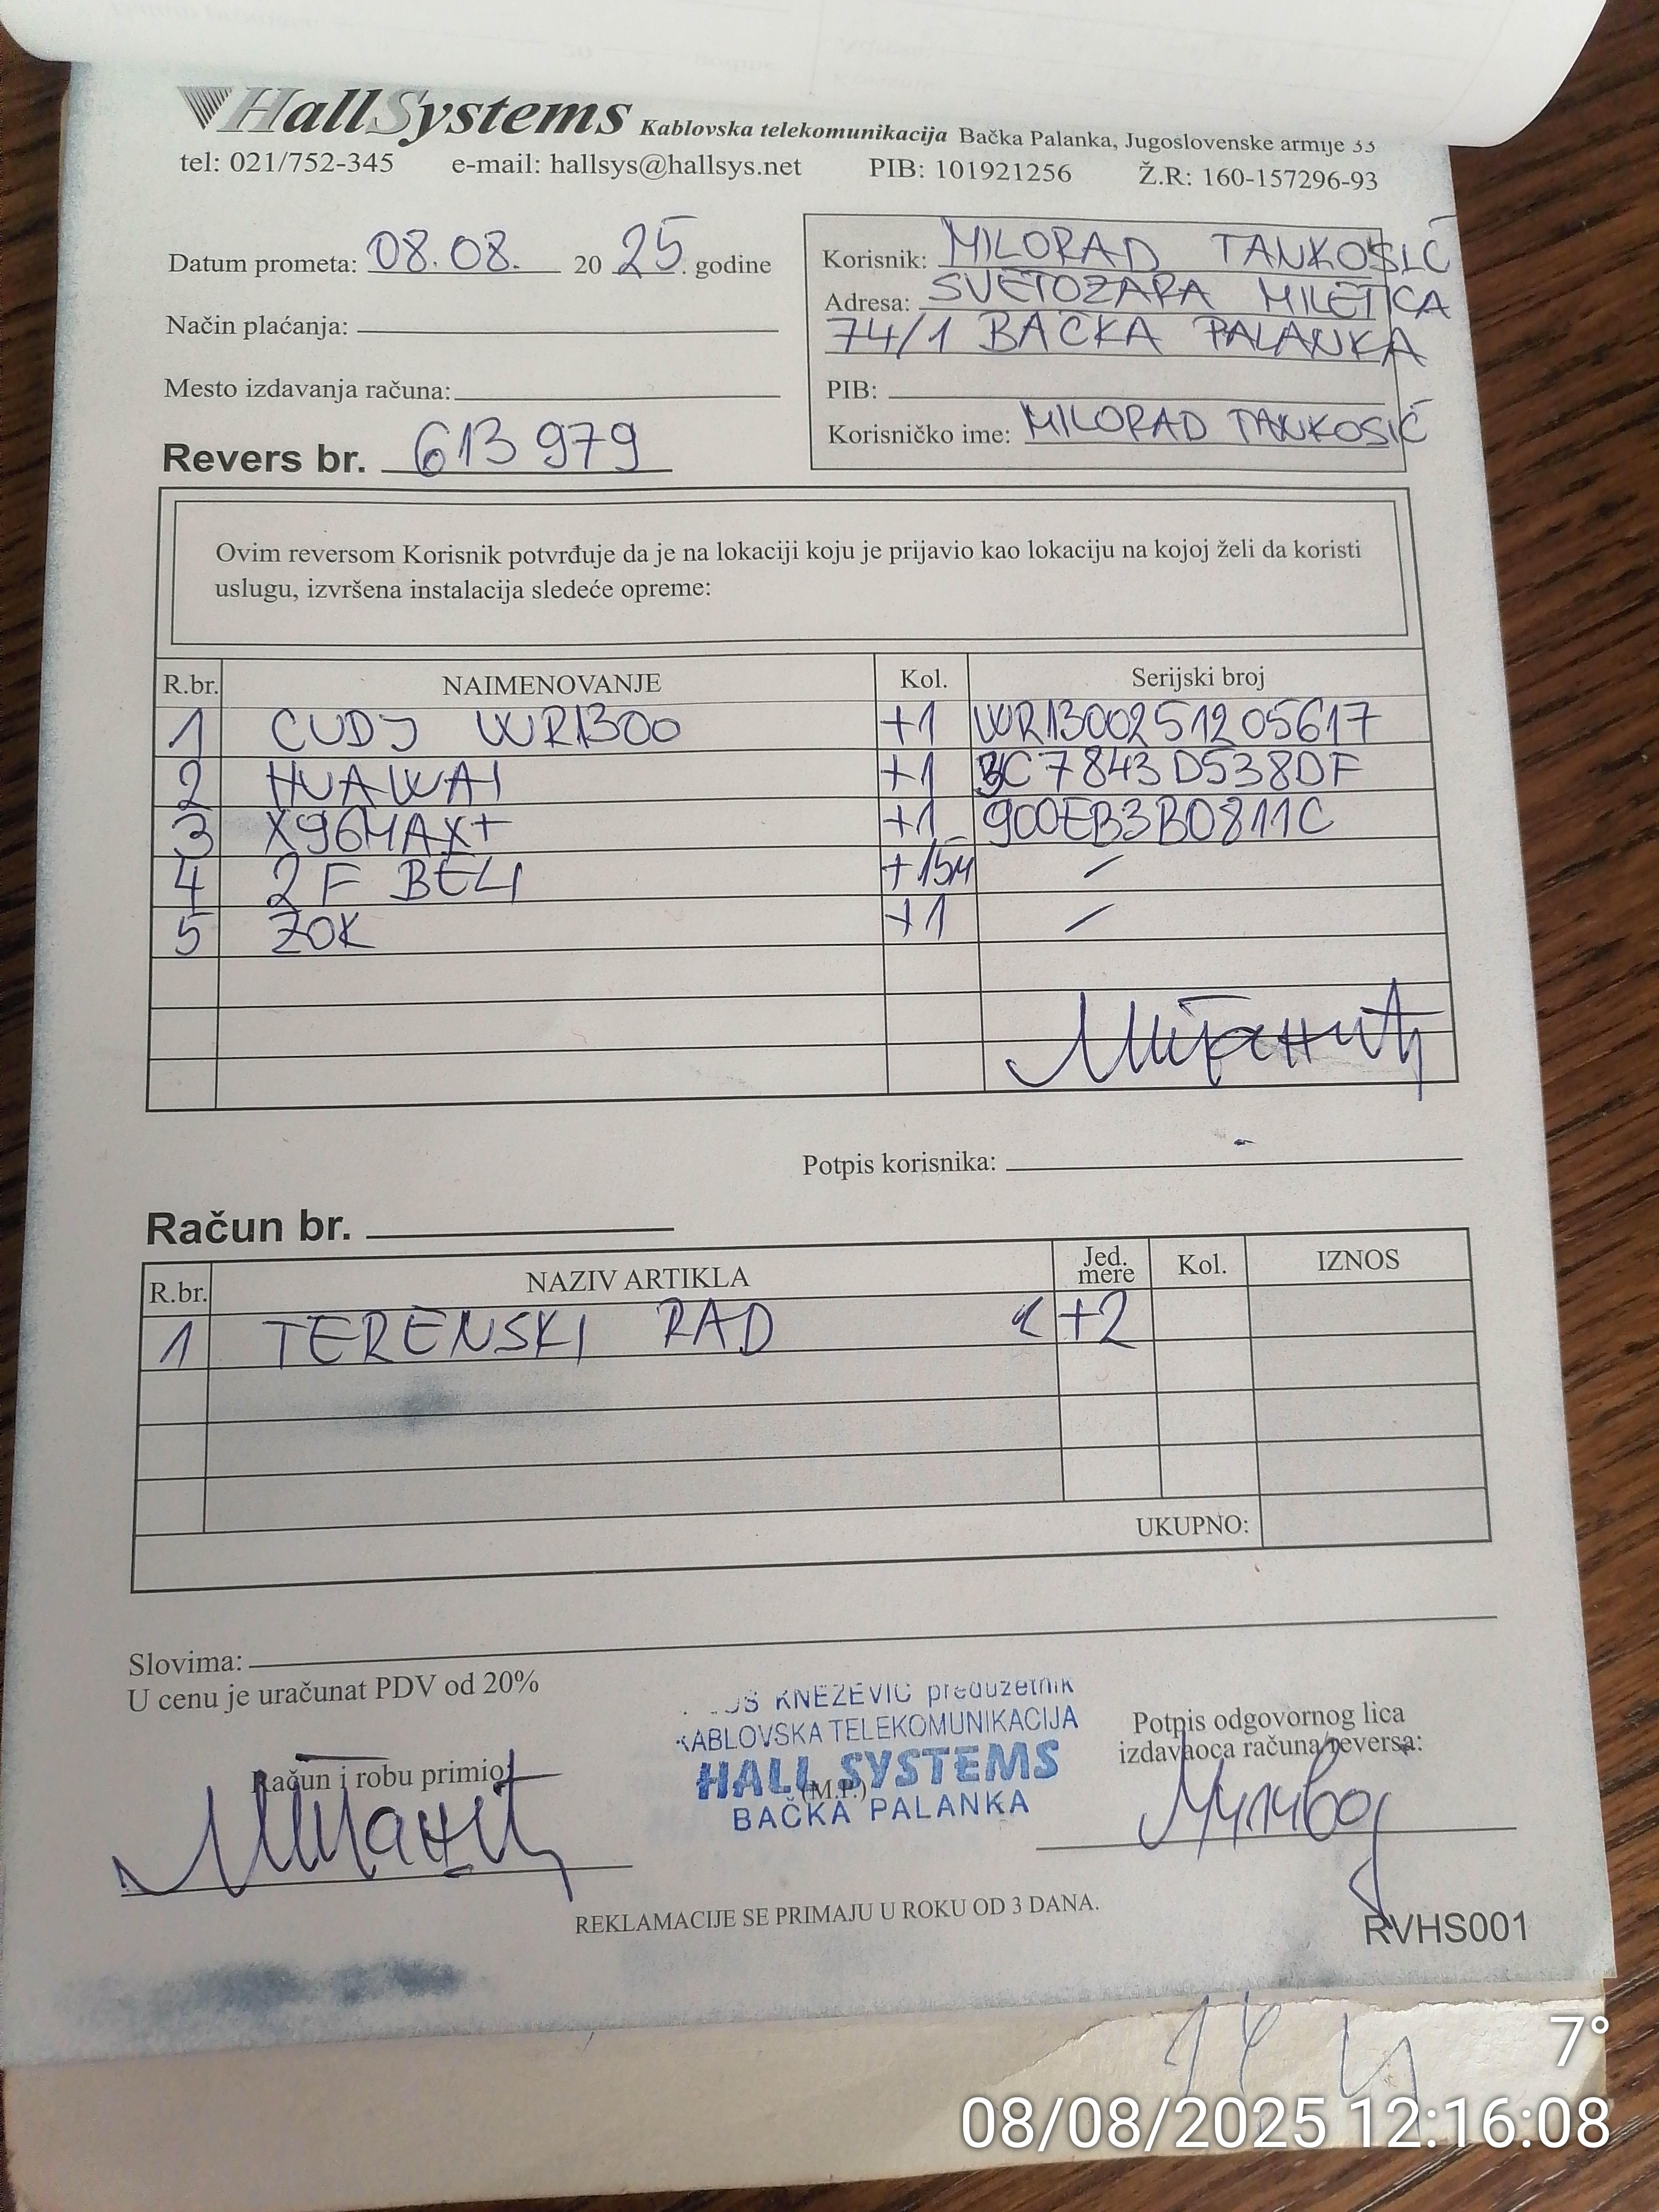 HallSystems Kablovska telekomunikacija Bačka Palanka, Jugoslovenske armije 33
tel: 021/752-345 e-mail: hallsys@hallsys.net PIB: 101921256 Ž.R: 160-157296-93
Datum prometa: 08.08. 20 25. godine
Način plaćanja:
Mesto izdavanja računa:
Revers br. 613979
Korisnik: MILORAD TANKOSIĆ
Adresa: SVETOZARA MILETIĆA
74/1 BAČKA PALANKA
PIB:
Korisničko ime: MILORAD TANKOSIĆ
Ovim reversom Korisnik potvrđuje da je na lokaciji koju je prijavio kao lokaciju na kojoj želi da koristi
uslugu, izvršena instalacija sledeće opreme:
R.br. NAIMENOVANJE Kol. Serijski broj
1 CUDJ WR1300 +1 WR1300251205617
2 HUAWAI +1 3C7843D538DF
3 X96MAX+ +1 900EB3B0811C
4 2F BELI +15M /
5 ZOK +1 /
Potpis korisnika:
Račun br.
R.br. NAZIV ARTIKLA Jed. mere Kol. IZNOS
1 TERENSKI RAD +2
UKUPNO:
Slovima:
U cenu je uračunat PDV od 20%
KNEŽEVIĆ preduzetnik
KABLOVSKA TELEKOMUNIKACIJA
HALL SYSTEMS
BAČKA PALANKA
(M.P.)
Račun i robu primio:
Potpis odgovornog lica
izdavaoca računa/reversa:
REKLAMACIJE SE PRIMAJU U ROKU OD 3 DANA.
RVHS001
7°
08/08/2025 12:16:08